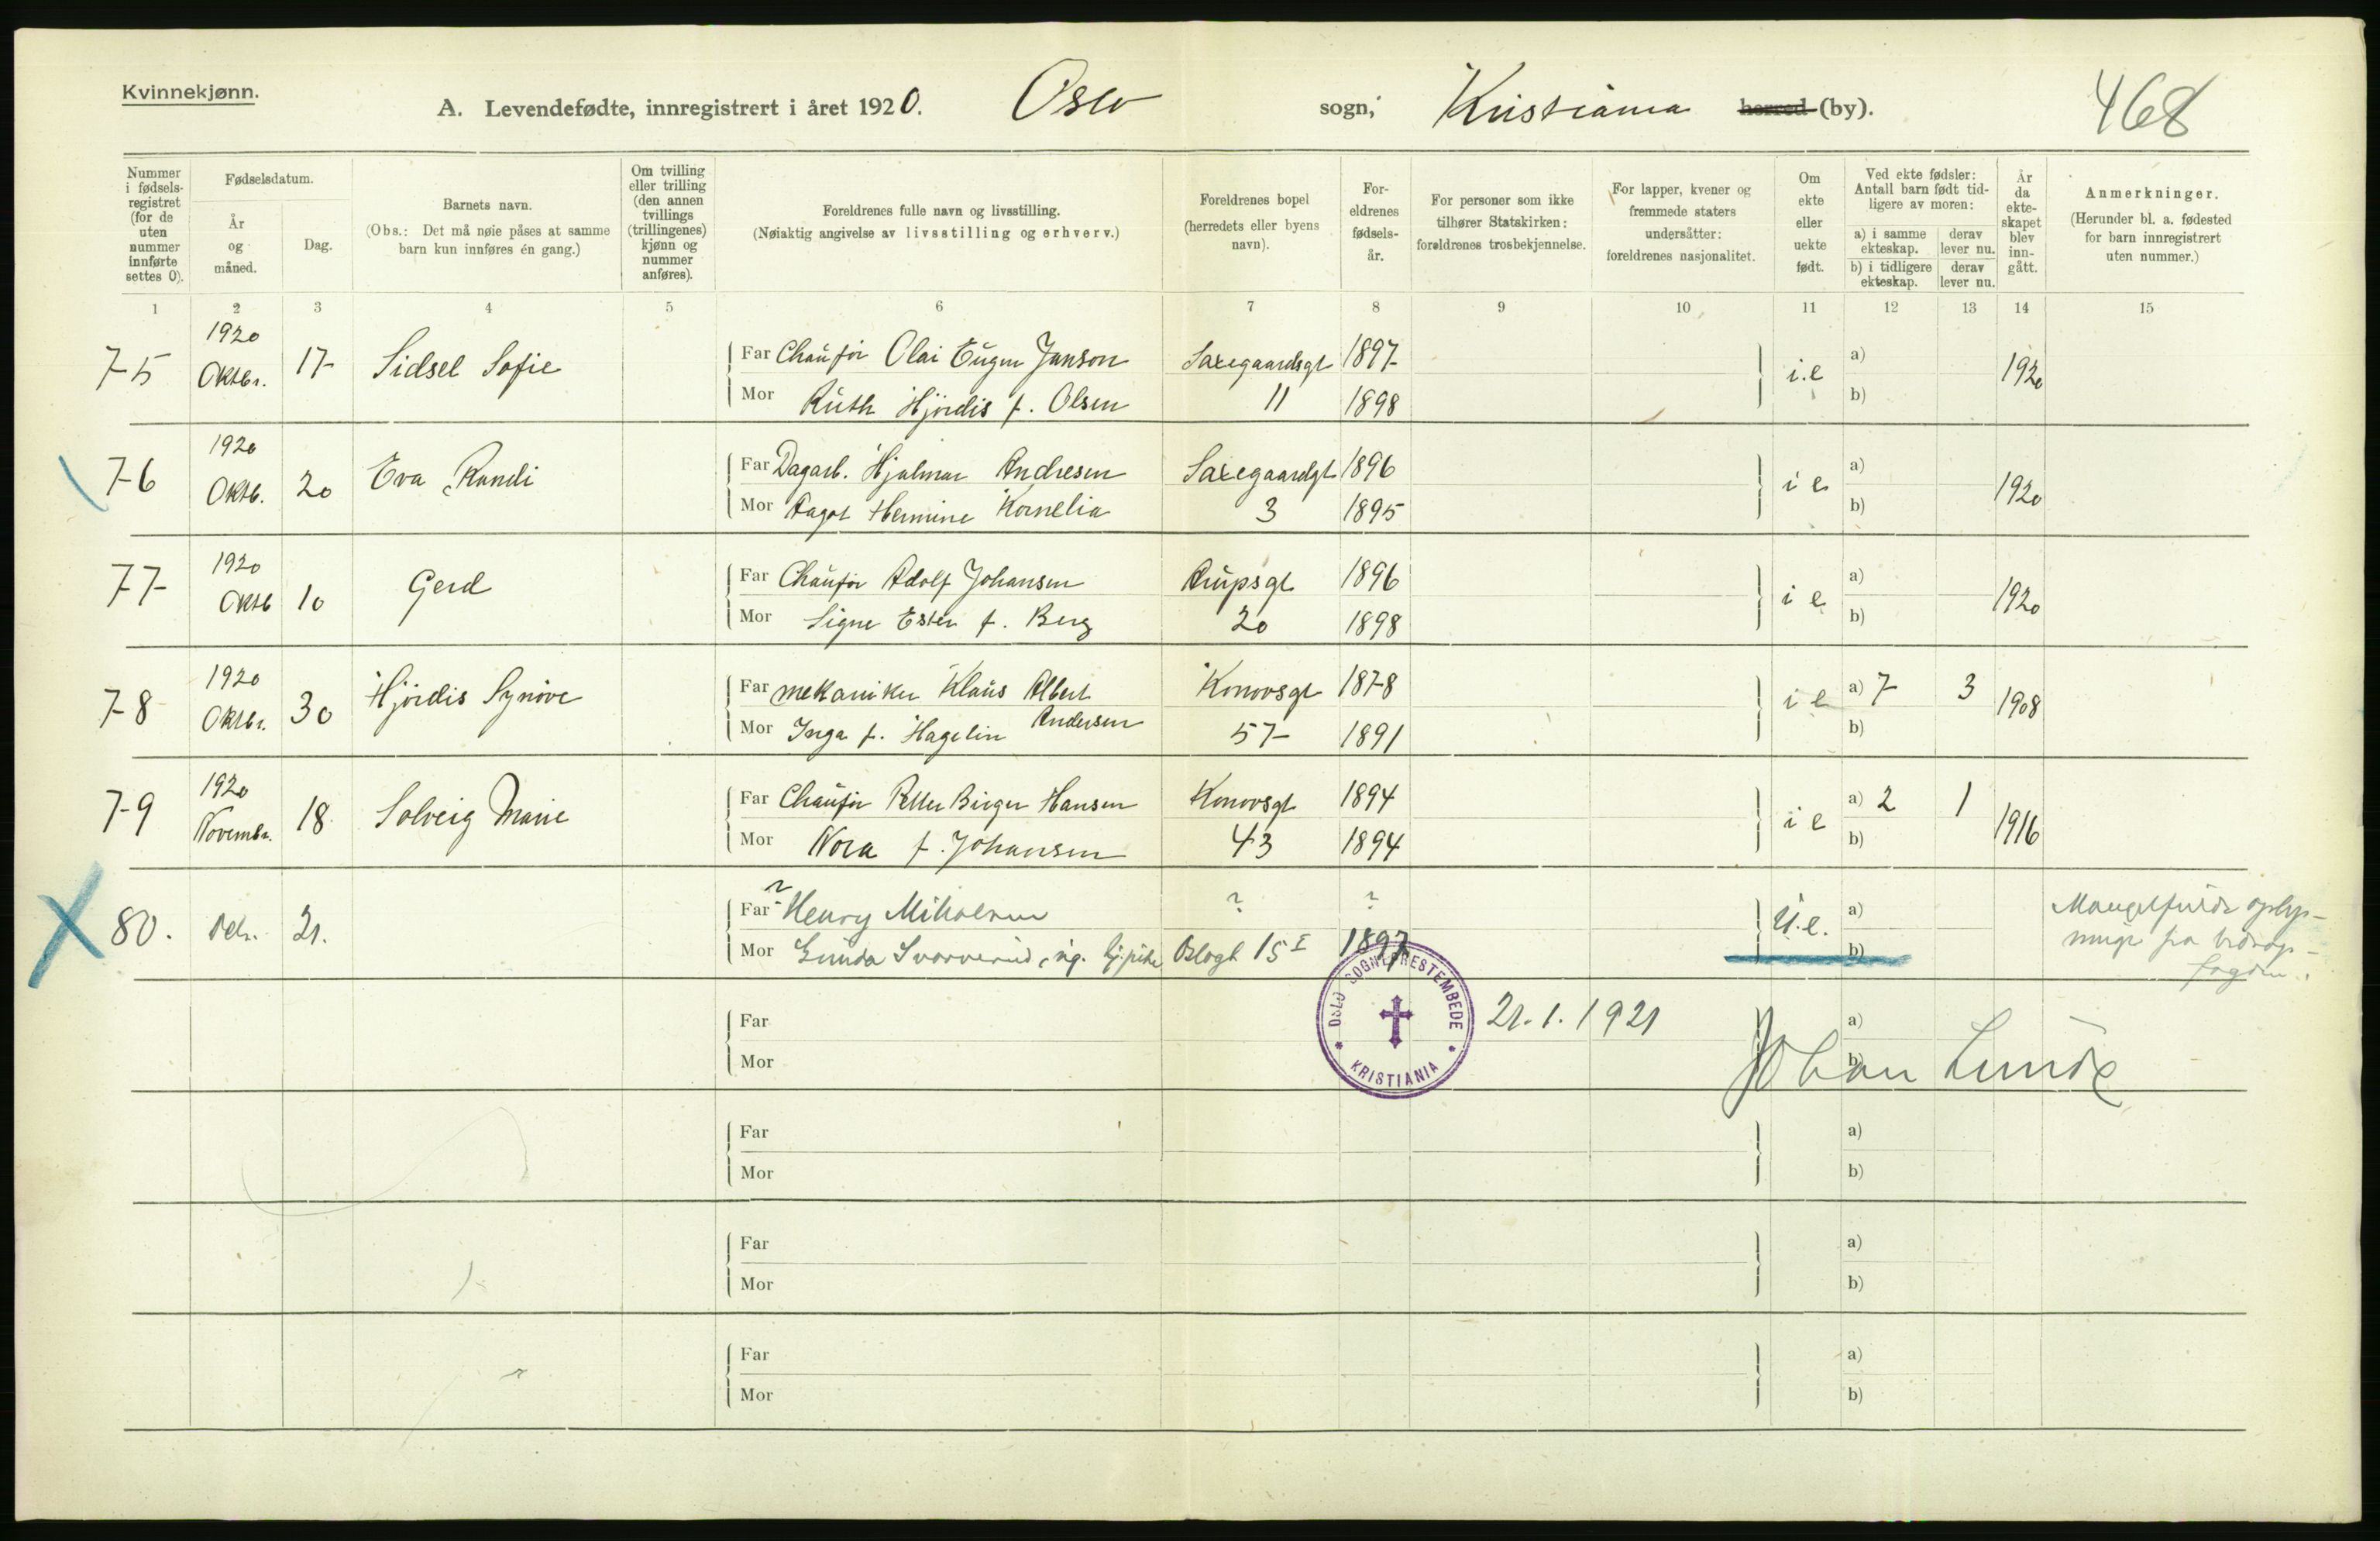 Kvinnekjønn.
A. Levendefødte, innregistrert i året 1920. Oslo sogn, Kristiania herred (by). 468
Nummer i fødsels-registret (for de uten nummer innførte settes 0).
Fødselsdatum.
År og måned.
Dag.
Barnets navn.
(Obs.: Det må nøie påses at samme barn kun innføres én gang.)
Om tvilling eller trilling (den annen tvillings (trillingenes) kjønn og nummer anføres).
Foreldrenes fulle navn og livsstilling.
(Nøiaktig angivelse av livsstilling og erhverv.)
Foreldrenes bopel (herredets eller byens navn).
For-eldrenes fødsels-år.
For personer som ikke tilhører Statskirken: foreldrenes trosbekjennelse.
For lapper, kvener og fremmede staters undersåtter: foreldrenes nasjonalitet.
Om ekte eller uekte født.
Ved ekte fødsler: Antall barn født tid-ligere av moren:
a) i samme ekteskap. derav lever nu.
b) i tidligere ekteskap. derav lever nu.
År da ekte-skapet blev inn-gått.
Anmerkninger.
(Herunder bl. a. fødested for barn innregistrert uten nummer.)
1 2 3 4 5 6 7 8 9 10 11 12 13 14 15
75 1920 Oktbr. 17 Sidsel Sofie Far Chaufør Olai Eugen Janson Saxegaardsgt 1897 i.e a) 1920
Mor Ruth Hjördis f. Olsen 11 1898 b)
76 1920 Oktb. 20 Eva Randi Far Dagarb. Hjalmar Andresen Saxegaardgt 1896 i e a) 1920
Mor Aagot Hermine Kornelia 3 1895 b)
77 1920 Oktb 10 Gerd Far Chaufør Adolf Johansen Arupsgt 1896 i e a) 1920
Mor Signe Ester f. Berg 20 1898 b)
78 1920 Oktbr. 30 Hjördis Synöve Far mekaniker Klaus Albert Andersen Konowsgt 1878 i e a) 7 3 1908
Mor Inga f. Hagelin 57 1891 b)
79 1920 Novembr. 18 Solveig Marie Far Chaufør Petter Birger Hansen Konowsgt 1894 i e a) 2 1 1916
Mor Nora f. Johansen 43 1894 b)
80. 21. Far ? Henry ? ? U.e. a)
Mor Gunda Oslogt 15 I 1897 b)
fra
Far 21.1.1921 a)
Mor Johan Lunde b)
OSLO SOGNEPRESTEMBEDE KRISTIANIA
Far a)
Mor b)
Far a)
Mor b)
Far a)
Mor b)